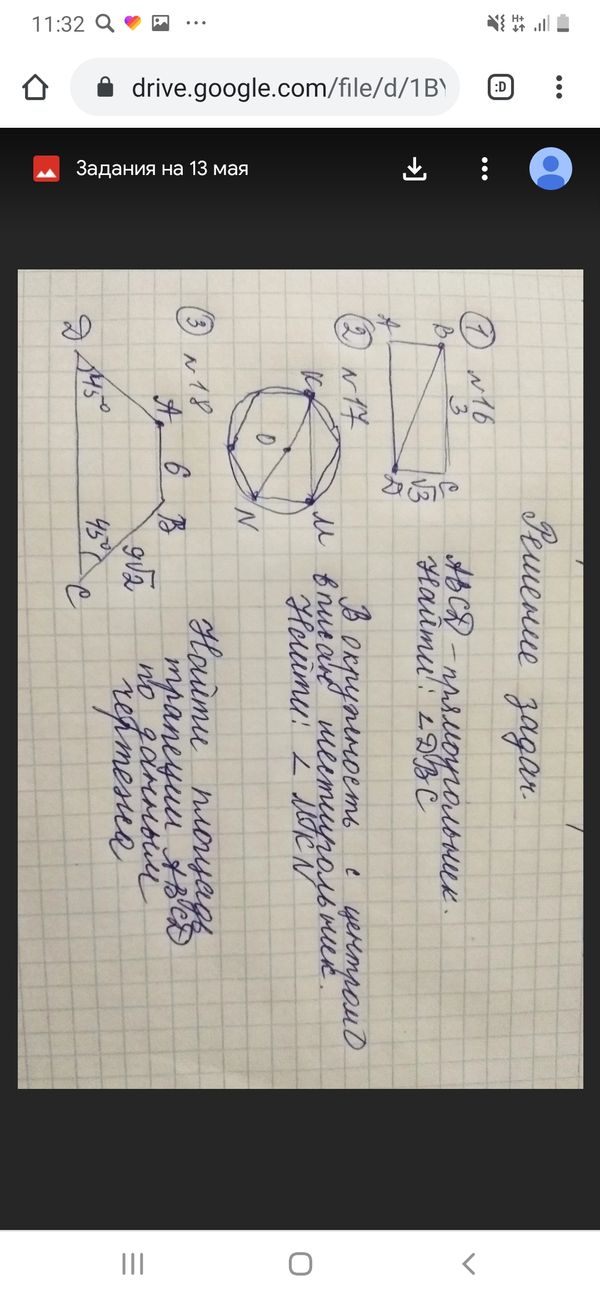 11:32
H+
drive.google.com/file/d/1BY
:D
Задания на 13 мая
Решение задач.
① №16
B
3
C
A
√3
D
ABCD – прямоугольник.
Найти: ∠DBC
② №17
K
M
O
N
В окружность с центром O
вписан шестиугольник.
Найти: ∠MKN
③ №18
A
6
B
9√2
45°
45°
D
C
Найти площадь
трапеции ABCD
по данным
чертежа